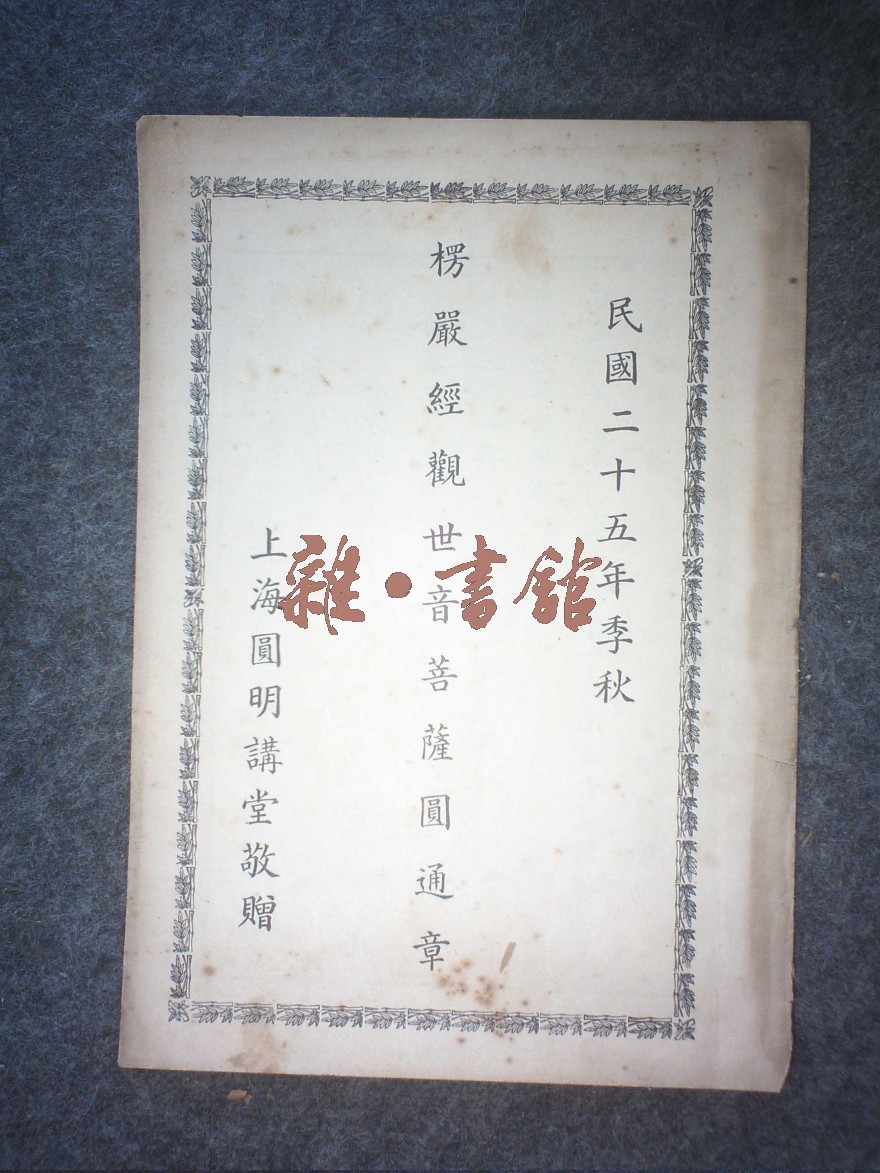 民國二十五年季秋
楞嚴經觀世音菩薩圓通章
上海圓明講堂敬贈
雜·書館